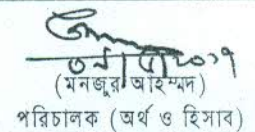 (মনজুর আহিম্মদ)
পরিচালক (অর্থ ও হিসাব)